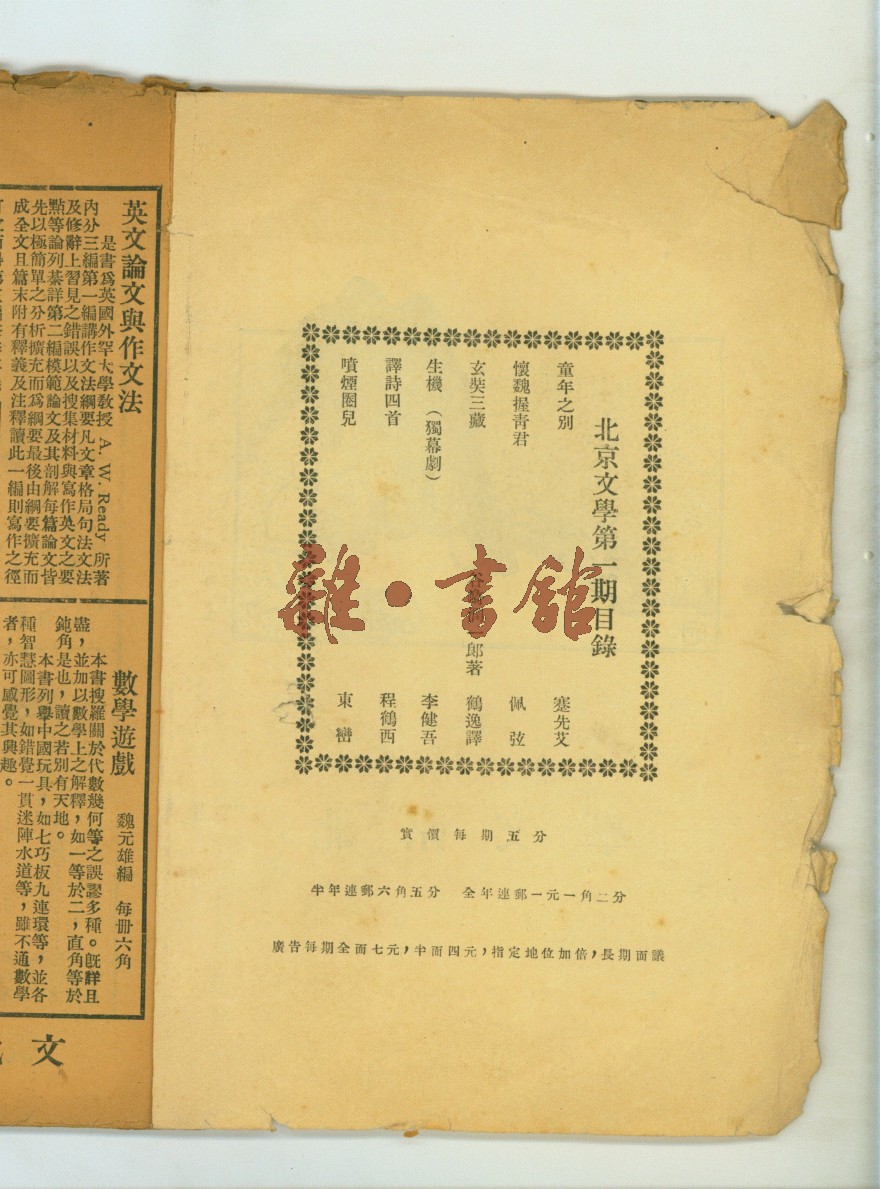 北京文學第一期目錄
童年之別 蹇先艾
懷魏握靑君 佩弦
玄奘三藏 谷崎潤一郎著 鶴逸譯
生機（獨幕劇） 李健吾
譯詩四首 程鶴西
噴煙圈兒 東巒
實價每期五分
半年連郵六角五分 全年連郵一元一角二分
廣告每期全面七元，半面四元，指定地位加倍，長期面議
雜·書館
英文論文與作文法
是書爲英國外罕大學敎授 A. W. Ready 所著
內分三編第一編講作文法綱要凡文章格局句法文法
及修辭上習見之錯誤以及搜集材料與寫作英文之要
點等論列綦詳第二編模範論文及其剖解每篇論文皆
先以極簡單之分析擴充而爲綱要最後由綱要擴充而
成全文且篇末附有釋義及注釋讀此一編則寫作之徑
數學遊戲 魏元雄編 每册六角
本書搜羅關於代數幾何等之誤謬多種。旣詳且
盡，並加以數學上之解釋，如一等於二，直角等於
鈍角是也，讀之若別有天地。
本書列舉中國玩具，如七巧板九連環等，並各
種智慧圖形，如錯覺一貫迷陣水道等，雖不通數學
者，亦可感覺其興趣。
文